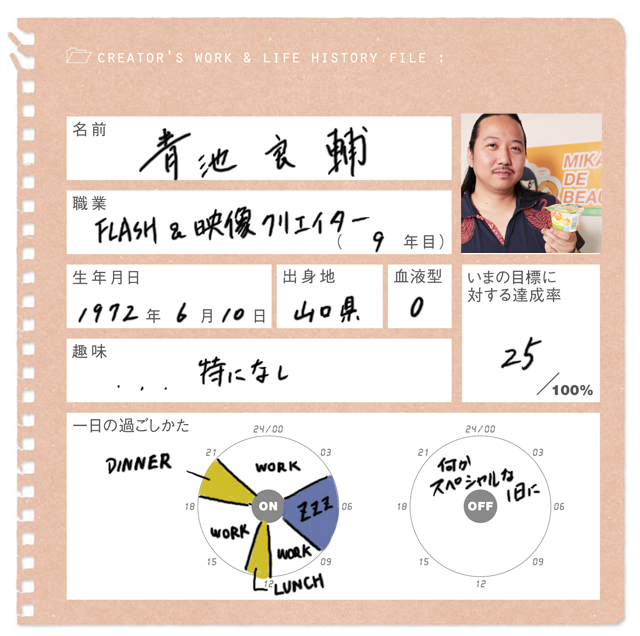 CREATOR'S WORK & LIFE HISTORY FILE :
名前
青池 良輔
MIKA
DE
BEAU
職業
FLASH & 映像クリエイター
( 9 年目)
生年月日
1972 年 6 月 10 日
出身地
山口県
血液型
O
いまの目標に
対する達成率
25
/100%
趣味
... 特になし
一日の過ごしかた
24/00
03
06
09
12
15
18
21
ON
WORK
ZZZ
WORK
LUNCH
WORK
DINNER
24/00
03
06
09
12
15
18
21
OFF
何か
スペシャルな
1日に